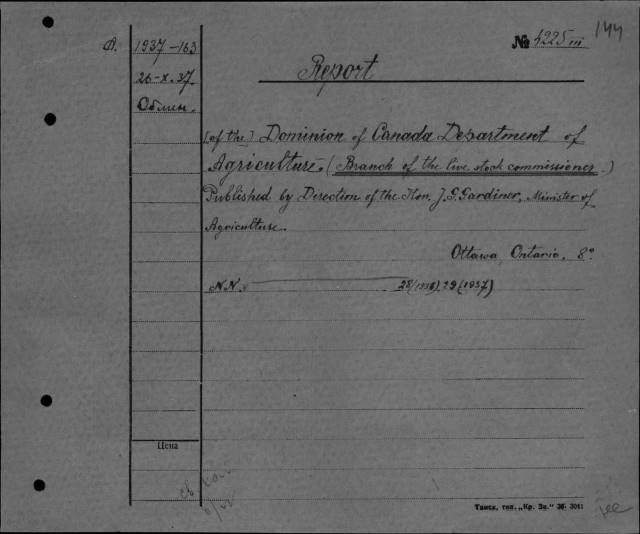 144
№ 4225 III
A. 1937-163
26-X.37.
Обмен.
Report
(of the) Dominion of Canada Department of
Agriculture. (Branch of the live stock commissioner.)
Published by Direction of the Hon. J.G. Gardiner, Minister of
Agriculture.
Ottawa, Ontario. 8°
NN. 28(1936), 29(1937)
Цена